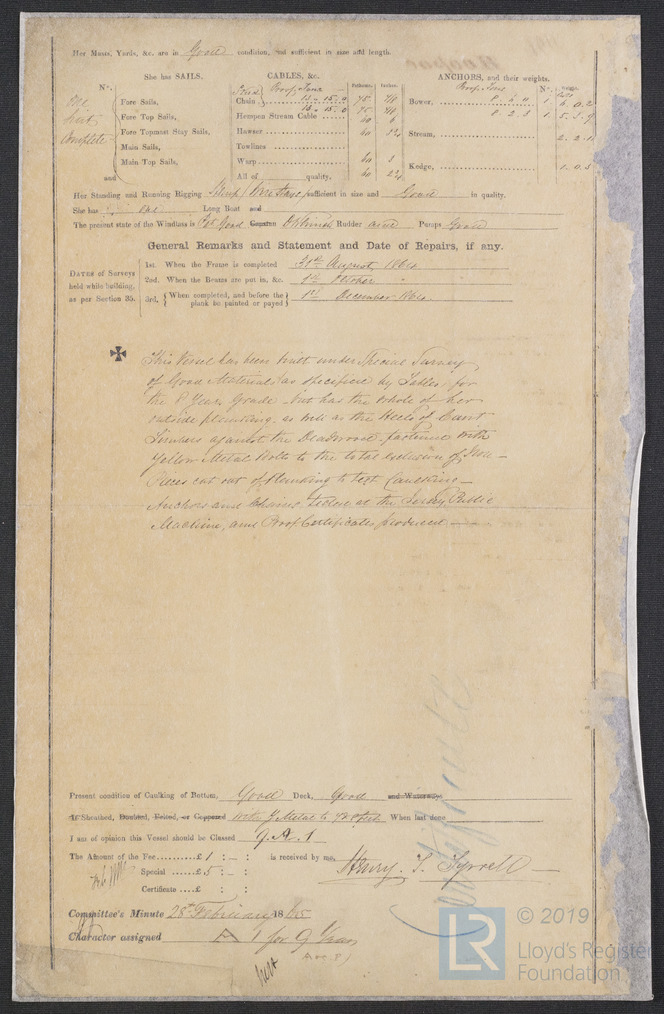 Her Masts, Yards, &c. are in Good condition, and sufficient in size and length.
She has SAILS.
CABLES, &c.
ANCHORS, and their weights.
N°.
Fathoms.
Inches.
N°.
Proof Tons
Proof Tons
One
Suit
Complete
and
Fore Sails,
Fore Top Sails,
Fore Topmast Stay Sails,
Main Sails,
Main Top Sails,
Chain 13 - 15 - 0 75
13 - 15 - 0 75
Hempen Stream Cable 60 6
Hawser 60
Towlines
Warp 60 3
All of quality. 60
Bower, 1
8 2 3 1
Stream,
Kedge,
Her Standing and Running Rigging Hemp sufficient in size and Good in quality.
She has One Long Boat and
The present state of the Windlass is Pat Good Capstan Rudder and Pumps Good
General Remarks and Statement and Date of Repairs, if any.
DATES of Surveys
held while building,
as per Section 35.
1st. When the Frame is completed 31st August, 1864
2nd. When the Beams are put in, &c. 1st October "
3rd. { When completed, and before the plank be painted or payed } 1st December 1864
This Vessel has been built under Special Survey
of Good Materials as specified by Tables for
the 8 Years Grade but has the whole of her
outside planking, as well as the Heels of Cant
Timbers against the Deadwood fastened with
Yellow Metal Bolts to the total exclusion of Iron -
Pieces cut out of Planking to test Caulking -
Anchors and Chains tested at the Public
Machine, and Proof Certificates produced
Present condition of Caulking of Bottom, Good Deck, Good and Waterways
If Sheathed, Doubled, Felted, or Coppered with Y Metal to When last done
I am of opinion this Vessel should be Classed 9.A.1
The Amount of the Fee £1 : - : is received by me,
Special £5 : - :
Certificate £ : :
Henry. T. Tyrrell
Committee's Minute 28th February 1865
Character assigned A 1 for 9 Years
© 2019
LR
Lloyd's Register
Foundation